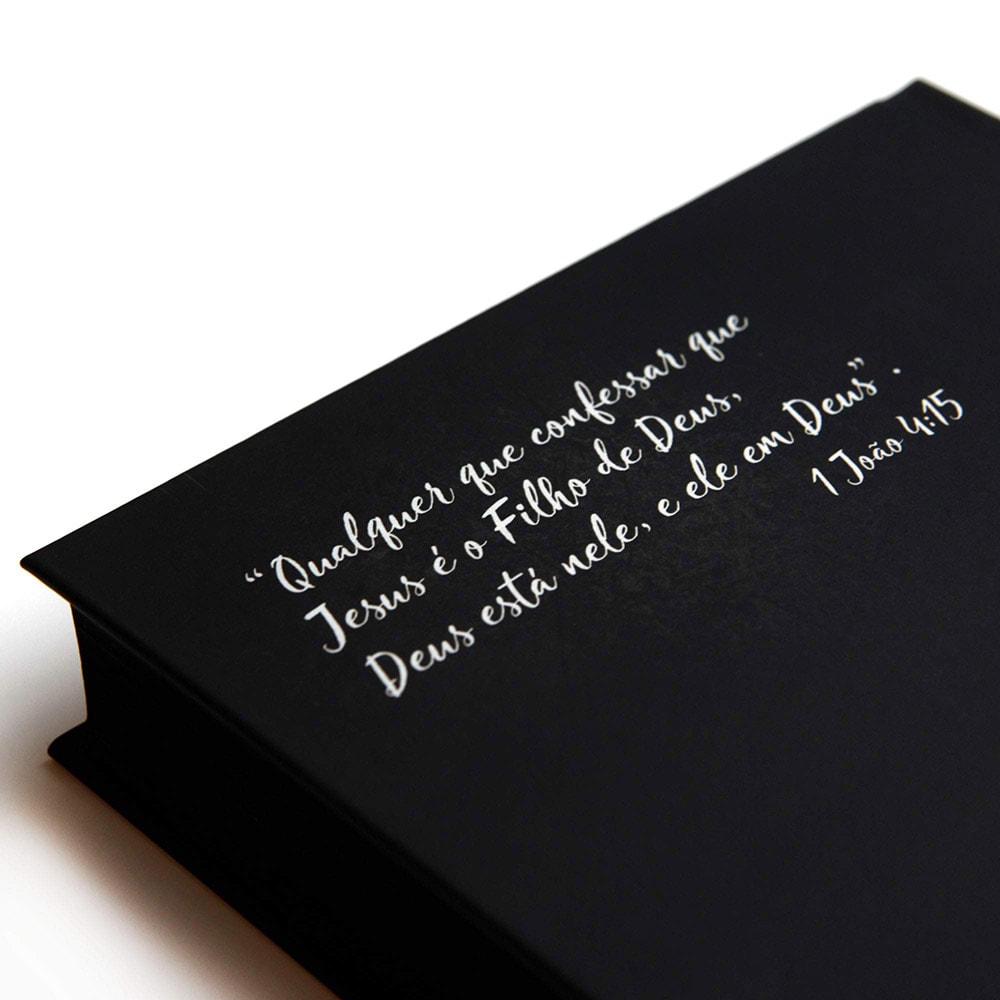 “Qualquer que confessar que
Jesus é o Filho de Deus,
Deus está nele, e ele em Deus”.
1 João 4:15